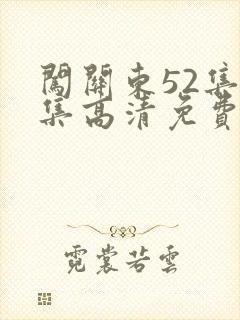 闖關東52集
集高清免費
霓裳若雲